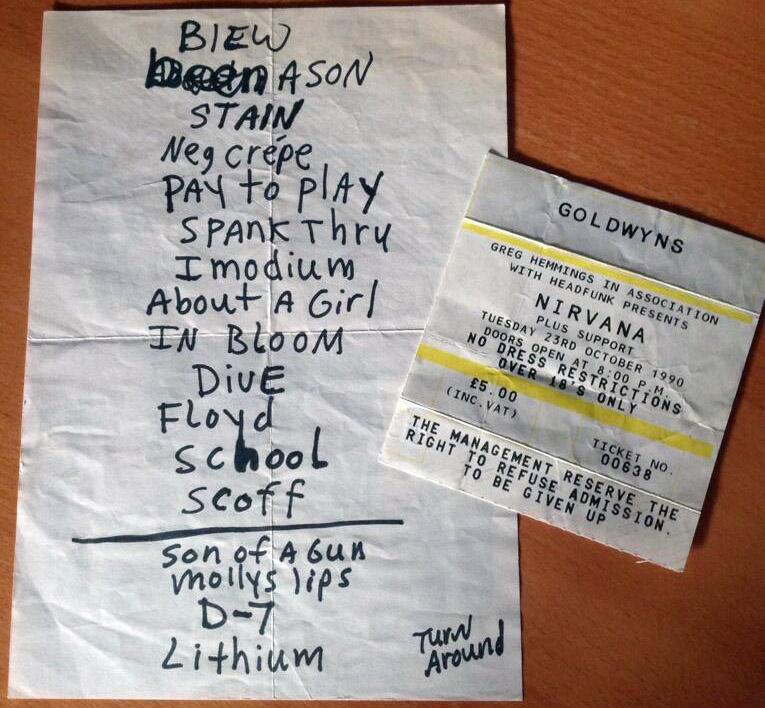 BLEW
been A SON
STAIN
Neg crépe
PAY to PlAY
SPANK Thru
Imodium
About A Girl
IN BLOOM
DiVE
Floyd
School
Scoff
son of A Gun
mollys lips
D-7
Lithium
Turn
Around
GOLDWYNS
GREG HEMMINGS IN ASSOCIATION
WITH HEADFUNK PRESENTS
NIRVANA
PLUS SUPPORT
TUESDAY 23RD OCTOBER 1990
DOORS OPEN AT 8:00 P.M.
NO DRESS RESTRICTIONS
OVER 18'S ONLY
£5.00
(INC.VAT)
TICKET NO.
00638
THE MANAGEMENT RESERVE THE
RIGHT TO REFUSE ADMISSION.
TO BE GIVEN UP